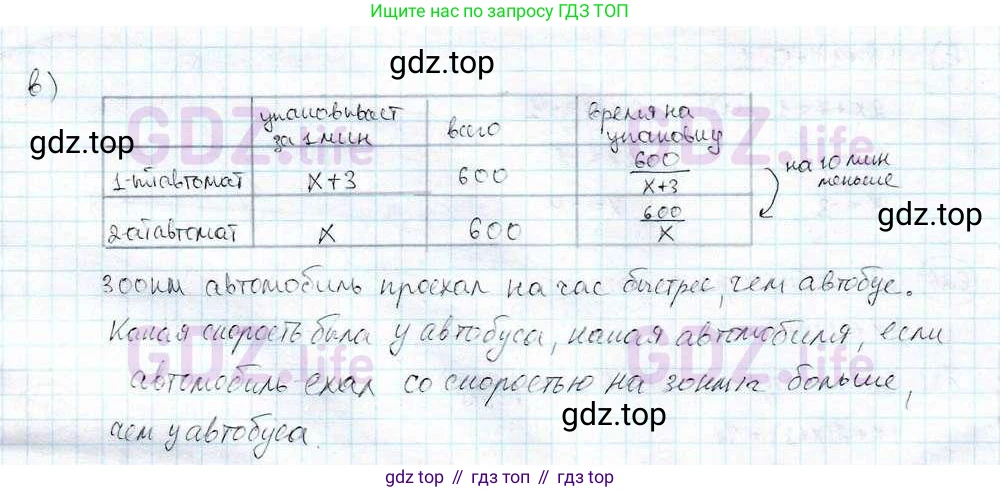 Ищите нас по запросу ГДЗ ТОП
gdz.top
в)
упаковывает за 1 мин
всего
время на упаковку
gdz.top
1-ый автомат x+3 600 600/x+3
на 10 мин меньше
gdz.top
2-ой автомат x 600 600/x
300км автомобиль проехал на час быстрее, чем автобус.
Какая скорость была у автобуса, какая автомобиля, если
автомобиль ехал со скоростью на 30км/ч больше,
gdz.top
чем у автобуса.
GDZ.life
GDZ.life
GDZ.life
GDZ.life
gdz.top // гдз топ // gdz.top // гдз топ